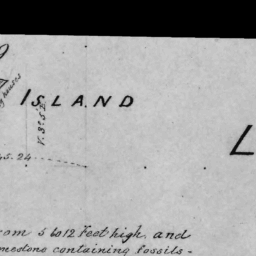 ISLAND
houses
V. 3° 5' E
L
45. 24
from 5 to 12 Feet high and
mestone containing fossils -